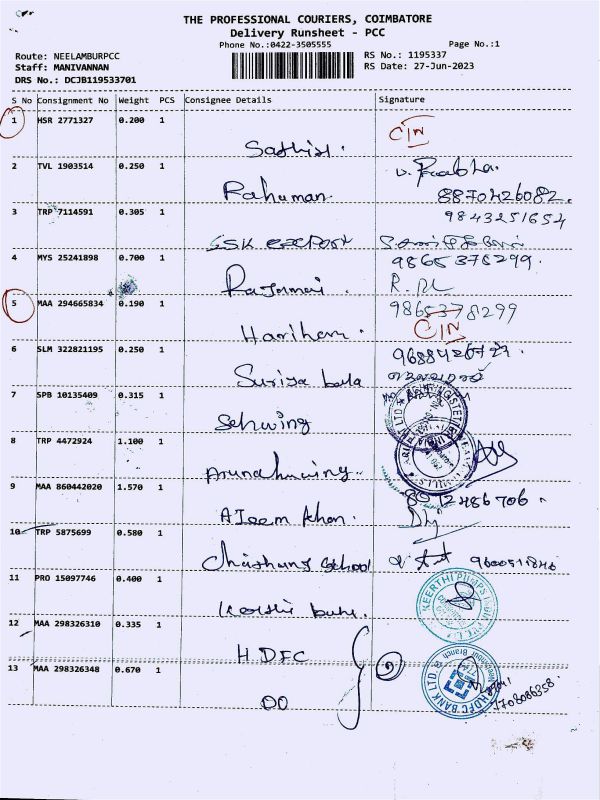 THE PROFESSIONAL COURIERS, COIMBATORE
Delivery Runsheet - PCC
Phone No.:0422-3505555 Page No.:1
Route: NEELAMBURPCC RS No.: 1195337
Staff: MANIVANNAN RS Date: 27-Jun-2023
DRS No.: DCJB119533701
S No Consignment No Weight PCS Consignee Details Signature
1 HSR 2771327 0.200 1
CIN
Sathish.
2 TVL 1903514 0.250 1
v. Prabha.
Rahuman 8870426082.
3 TRP 7114591 0.305 1 9843251654
SSK export
4 MYS 25241898 0.700 1 9865376299.
Rajamani
5 MAA 294665834 0.190 1 9865378299
Hariharn. CIN
6 SLM 322821195 0.250 1
Suriya bala
7 SPB 10135409 0.315 1
Schwing
8 TRP 4472924 1.100 1
9 MAA 860442020 1.570 1
AJeem khan.
10 TRP 5875699 0.580 1
School 9600511846
11 PRO 15097746 0.400 1
KEERTHI PUMPS
12 MAA 298326310 0.335 1
HDFC
13 MAA 298326348 0.670 1
HDFC BANK LTD. Branch
DO 7708086358.